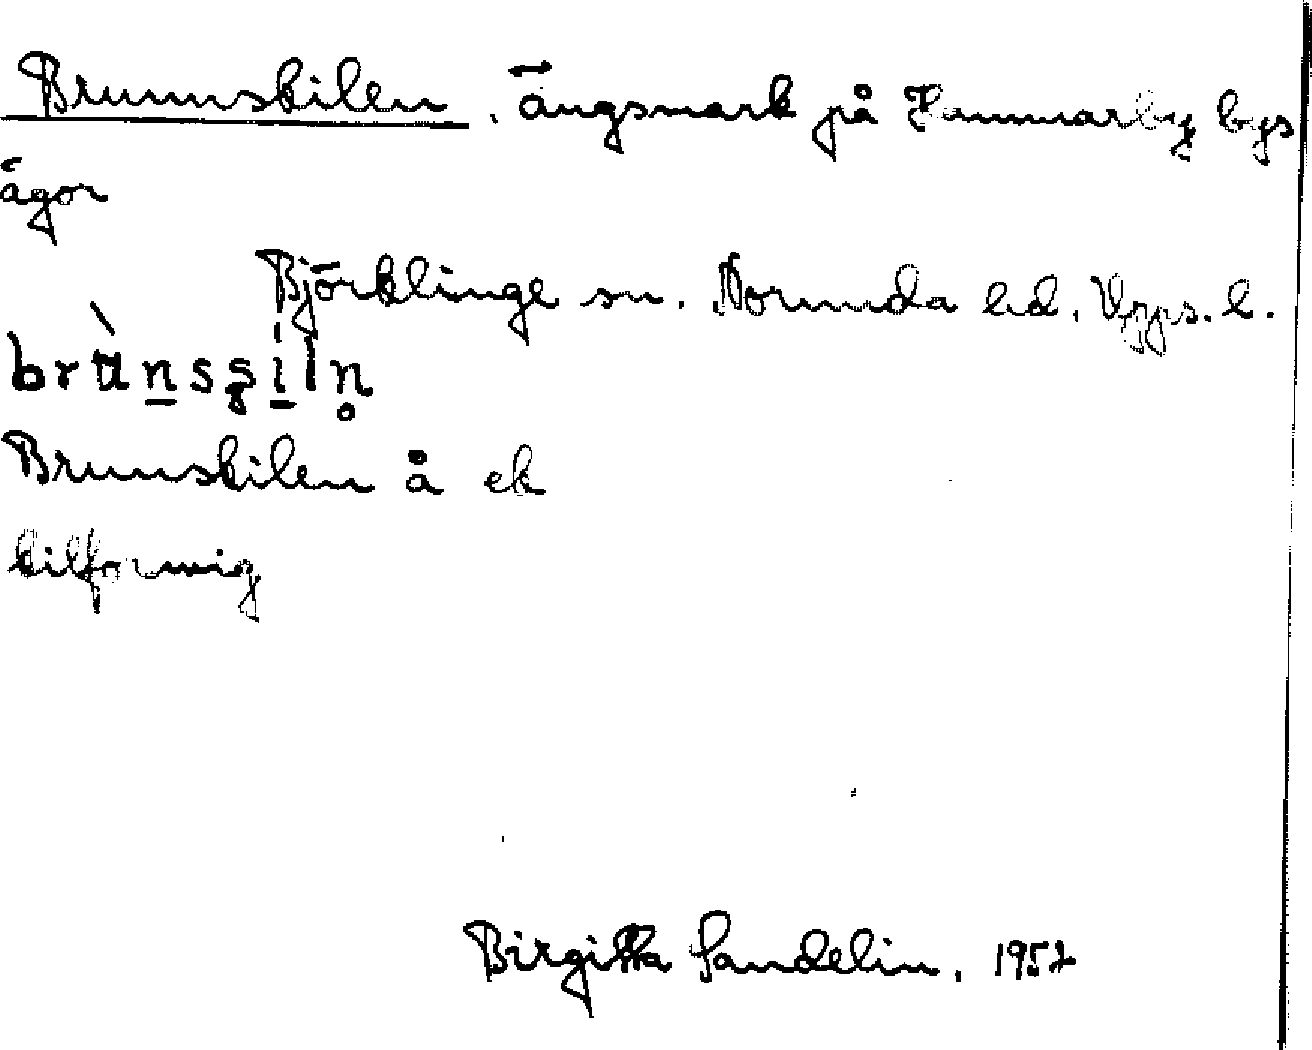 Brunnskilen, ängsmark på Hammarby bys
ägor
Björklinge sn. Norunda hd. Upps. l.
brùnsşiln̥
Brunskilen å ek
kilformig
Birgitta Sandelin, 1952